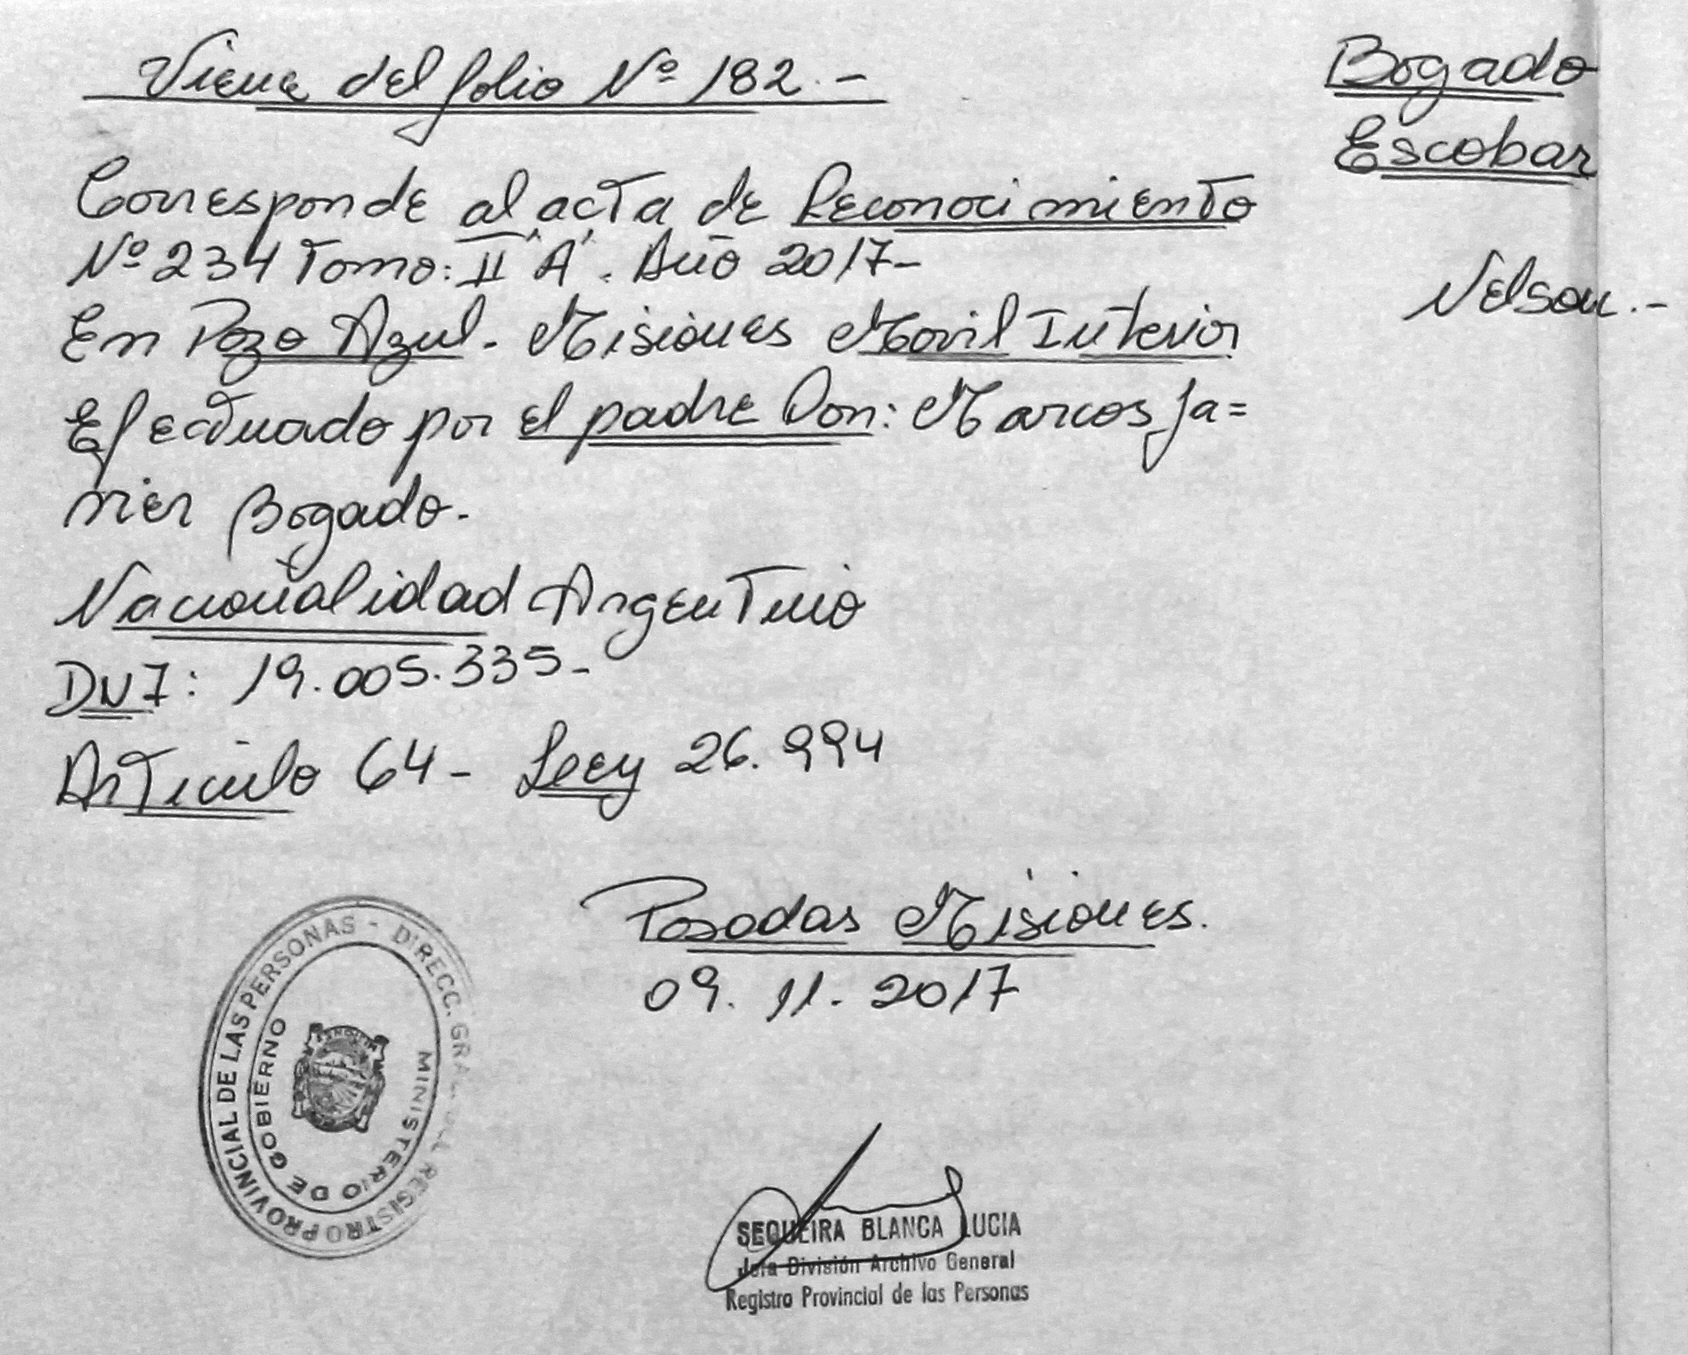 Viene del folio Nº 182.-
Corresponde al acta de Reconocimiento
Nº 234 Tomo: II "A". Año 2017-
En Pozo Azul. Misiones Movil Interior
Efectuado por el padre Don: Marcos Ja=
vier Bogado.
Nacionalidad Argentino
DNI: 19.005.335-
Artículo 64- Ley 26.994
Posadas Misiones.
09.11.2017
Bogado
Escobar
Nelson.-
DIRECC. GRAL. DEL REGISTRO PROVINCIAL DE LAS PERSONAS -
MINISTERIO DE GOBIERNO
SEQUEIRA BLANCA LUCIA
Jefa División Archivo General
Registro Provincial de las Personas